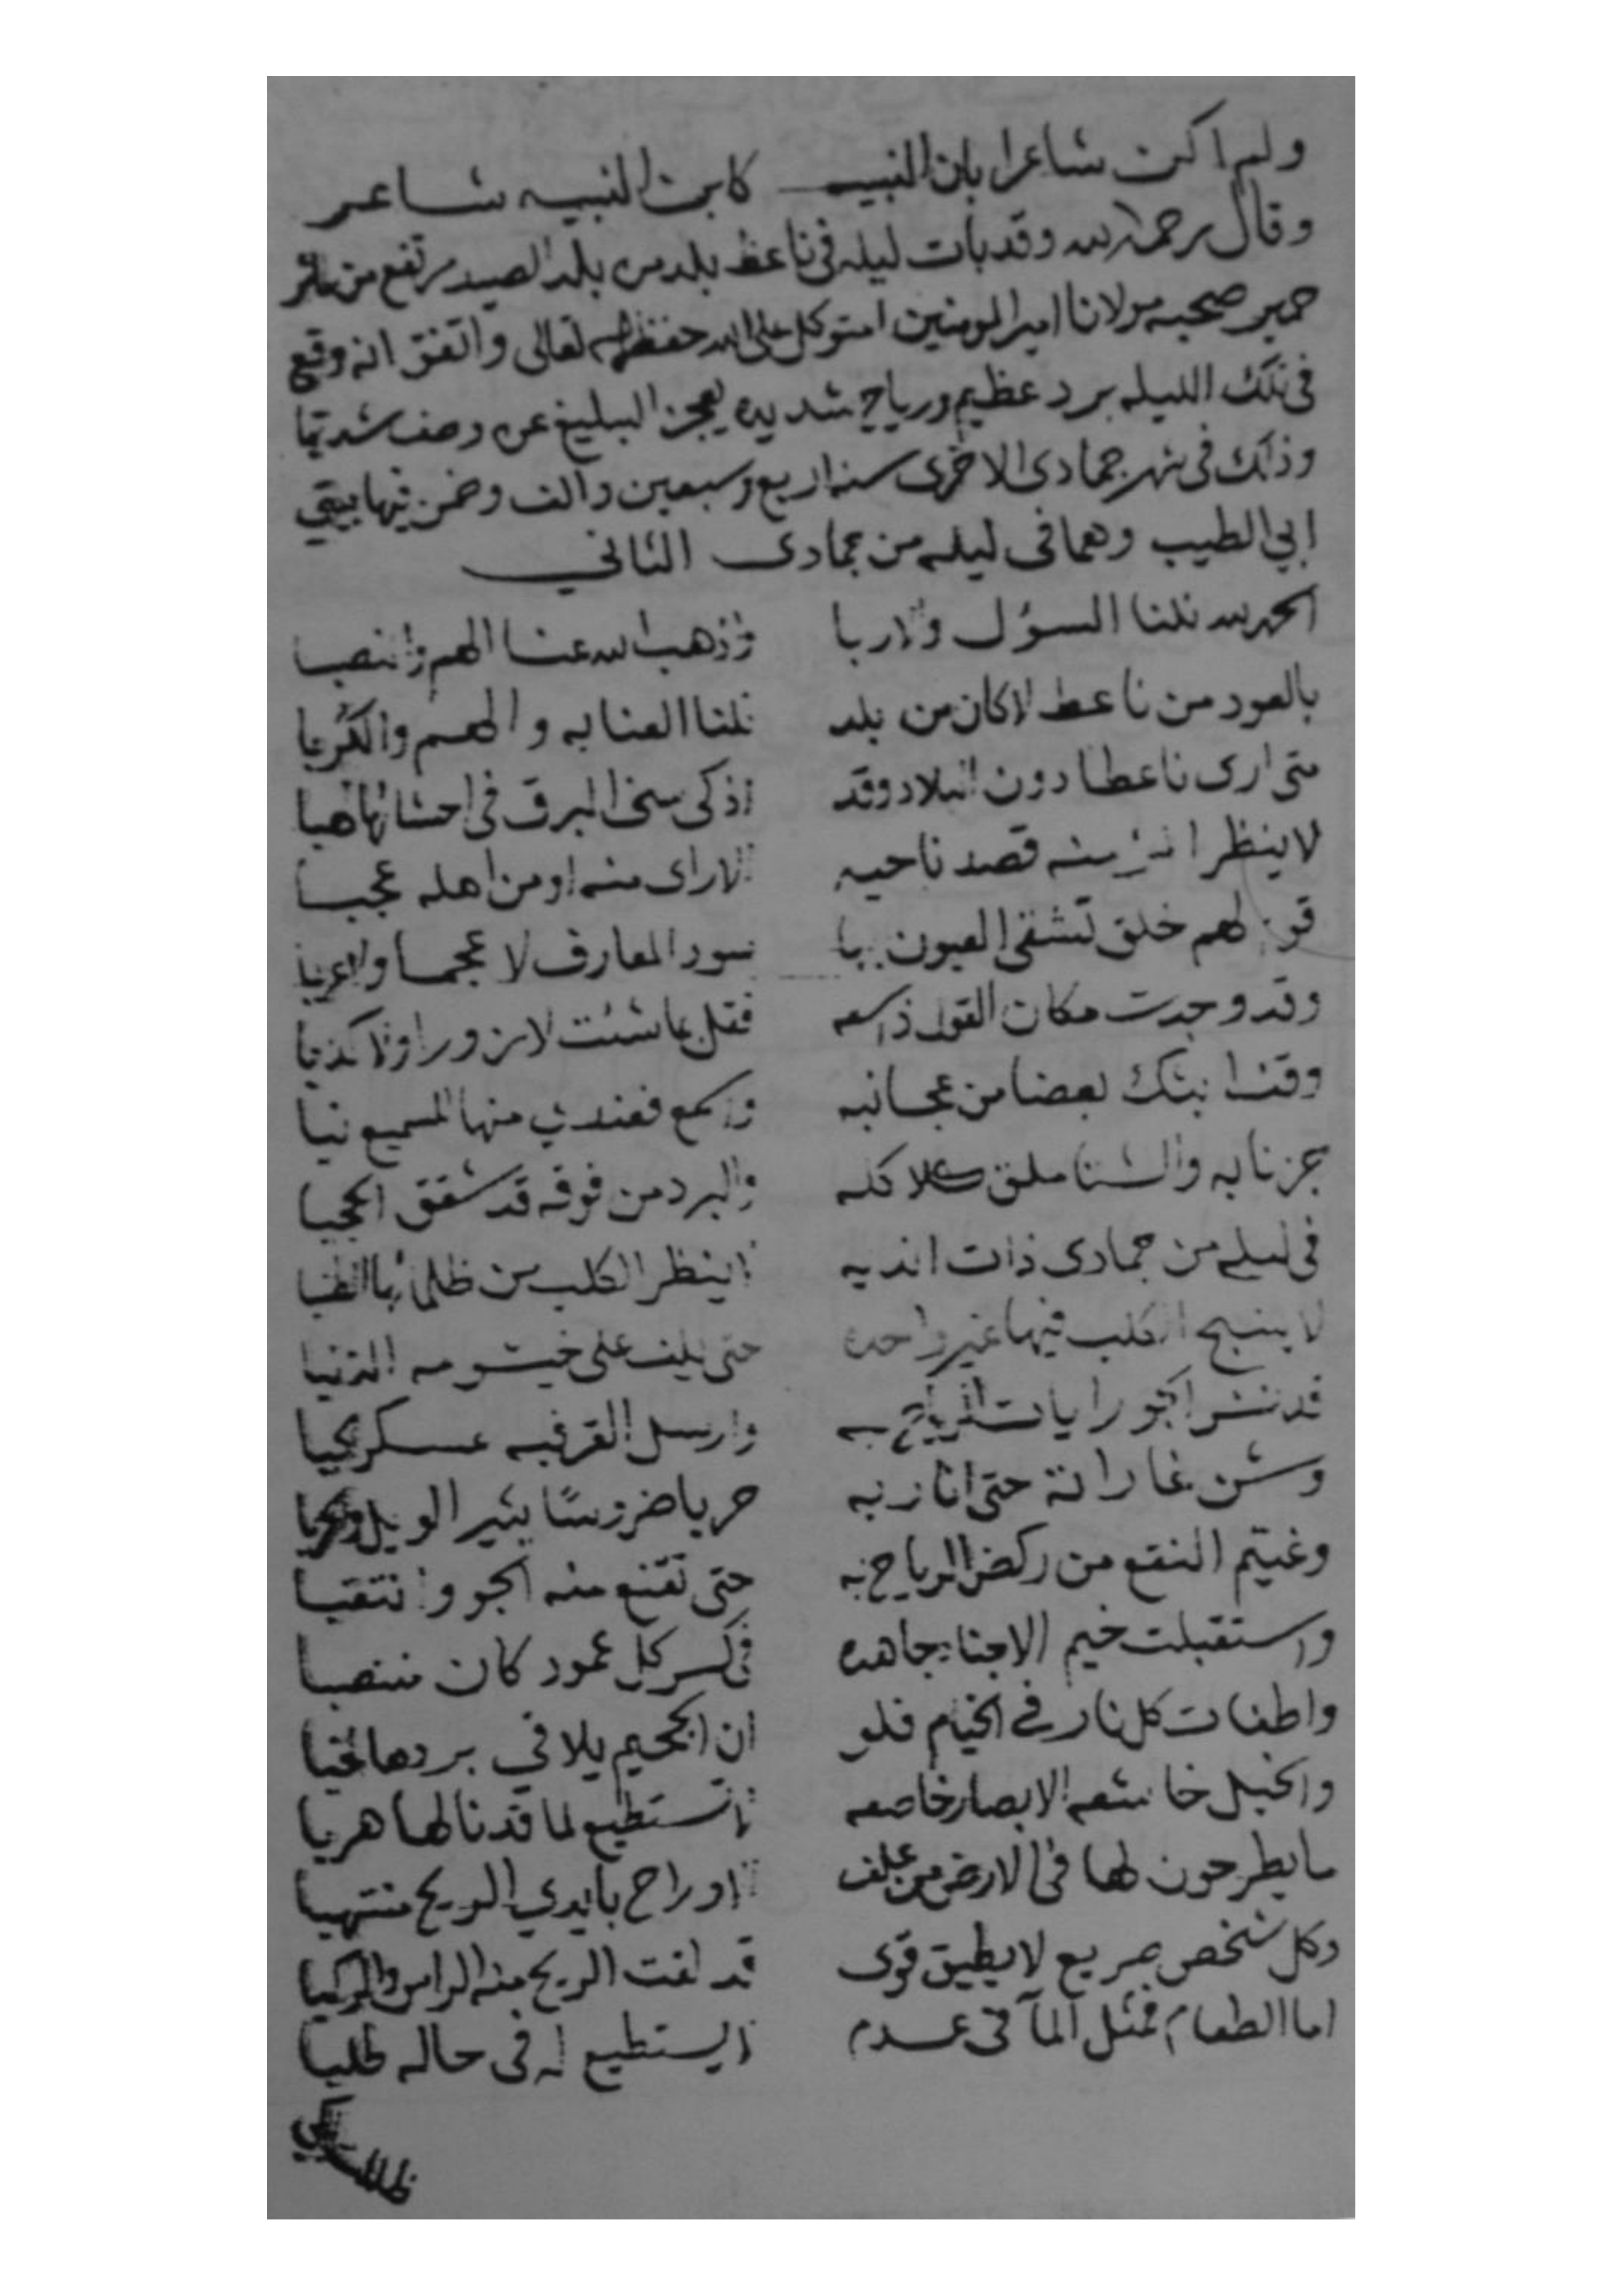 ولم اكن شاعرا بان النبيه كابن النبيه شاعر
وقال رحمه الله وقد بات ليله في ناعط بلد من بلد الصيد مرتفع من ماثر
حمير صحبه مولانا امير المومنين المتوكل على الله حفظه الله تعالى واتفق انه وقع
في تلك الليله برد عظيم ورياح شديده يعجز البليغ عن وصف شدتها
وذلك في شهر جمادى الاخرى سنه اربع وسبعين والف وضمن فيها بيتي
ابي الطيب وهما في ليله من جمادى الثاني
الحمد لله نلنا السؤل والاربا واذهب الله عنا الهم والنصبا
بالعود من ناعط لا كان من بلد نلنا العنا به والهم والكربا
متى ارى ناعطا دون البلاد وقد اذكى سنى البرق في احشائها لهبا
لا ينظر منه قصد ناحيه الا راى منه او من اهله عجبا
قوم لهم خلق تشفى العيون بها سود المعارف لا عجما ولا عربا
وقد وجدت مكان القول ذا سعه فقل بما شئت لا زورا ولا كذبا
وقف ابثك بعضا من عجائبه واسمع فعندي منها للسميع نبا
جزنا به والشتا ملق كلاكله والبرد من فوقه قد شقق الحجبا
في ليلة من جمادى ذات انديه لا ينظر الكلب من ظلمائها الطنبا
لا ينبح الكلب فيها غير واحده حتى يلف على خيشومه الذنبا
قد نشر الجو رايات الرياح به وارسل القر فيه عسكرا لجبا
وشن غاراته حتى اثار به حربا ضروسا يثير الويل والحربا
وغيم النقع من ركض الرياح به حتى تقنع منه الجو وانتقبا
واستقبلت خيم الاجناد جاهده في كسر كل عمود كان منتصبا
واطفات كل نار في الخيام فلو ان الجحيم يلاقي بردها لخبا
والخيل خاشعه الابصار خاضعه لا تستطيع لما قدنا لها هربا
ما يطرحون لها في الارض من علف الا وراح بايدي الريح منتهبا
وكل شخص صريع لا يطيق قوى قد لفت الريح منه الراس والركبا
اما الطعام فمثل المآ في عدم لا يستطيع له في حاله طلبا